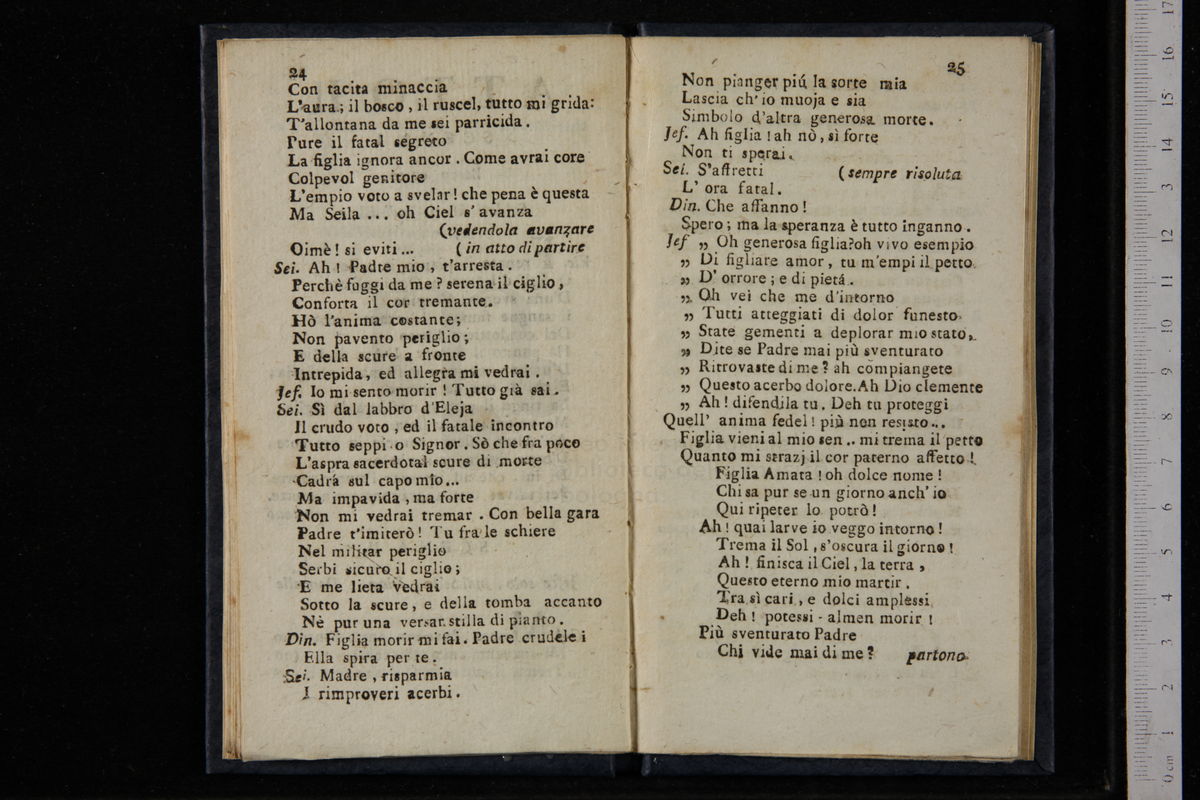 24
Con tacita minaccia
L'aura; il bosco, il ruscel, tutto mi grida:
T'allontana da me sei parricida.
Pure il fatal segreto
La figlia ignora ancor. Come avrai core
Colpevol genitore
L'empio voto a svelar! che pena è questa
Ma Seila ... oh Ciel s'avanza
(vedendola avanzare
Oimè! si eviti ... (in atto di partire
Sei. Ah! Padre mio, t'arresta.
Perchè fuggi da me? serena il ciglio,
Conforta il cor tremante.
Hò l'anima costante;
Non pavento periglio;
E della scure a fronte
Intrepida, ed allegra mi vedrai.
Jef. Io mi sento morir! Tutto già sai.
Sei. Sì dal labbro d'Eleja
Il crudo voto, ed il fatale incontro
Tutto seppi o Signor. Sò che fra poco
L'aspra sacerdotal scure di morte
Cadrà sul capo mio...
Ma impavida, ma forte
Non mi vedrai tremar. Con bella gara
Padre t'imiterò! Tu fra le schiere
Nel militar periglio
Serbi sicuro il ciglio;
E me lieta vedrai
Sotto la scure, e della tomba accanto
Nè pur una versar stilla di pianto.
Din. Figlia morir mi fai. Padre crudele i
Ella spira per te.
Sei. Madre, risparmia
I rimproveri acerbi.
25
Non pianger piú la sorte mia
Lascia ch'io muoja e sia
Simbolo d'altra generosa morte.
Jef. Ah figlia! ah nò, sì forte
Non ti sperai.
Sei. S'affretti (sempre risoluta
L' ora fatal.
Din. Che affanno!
Spero; ma la speranza è tutto inganno.
Jef „ Oh generosa figlia? oh vivo esempio
„ Di figliare amor, tu m'empi il petto
„ D' orrore; e di pietá.
„ Oh vei che me d'intorno
„ Tutti atteggiati di dolor funesto
„ State gementi a deplorar mio stato,
„ Dite se Padre mai più sventurato
„ Ritrovaste di me? ah compiangete
„ Questo acerbo dolore. Ah Dio clemente
„ Ah! difendila tu. Deh tu proteggi
Quell' anima fedel! più non resisto...
Figlia vieni al mio sen .. mi trema il petto
Quanto mi strazj il cor paterno affetto!
Figlia Amata! oh dolce nome!
Chi sa pur se un giorno anch' io
Qui ripeter lo potrò!
Ah! quai larve io veggo intorno!
Trema il Sol, s'oscura il giorno!
Ah! finisca il Ciel, la terra,
Questo eterno mio martir.
Tra sì cari, e dolci amplessi
Deh! potessi - almen morir!
Più sventurato Padre
Chi vide mai di me? partono